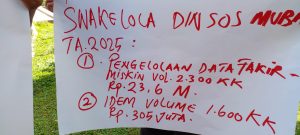 SWAKELOLA DINSOS MUBA
TA.2025 :
① PENGELOLAAN DATA FAKIR-
MISKIN VOL. 2.300 KK
RP. 23,6 M.
② IDEM VOLUME 1.600 KK
RP. 305 JUTA.